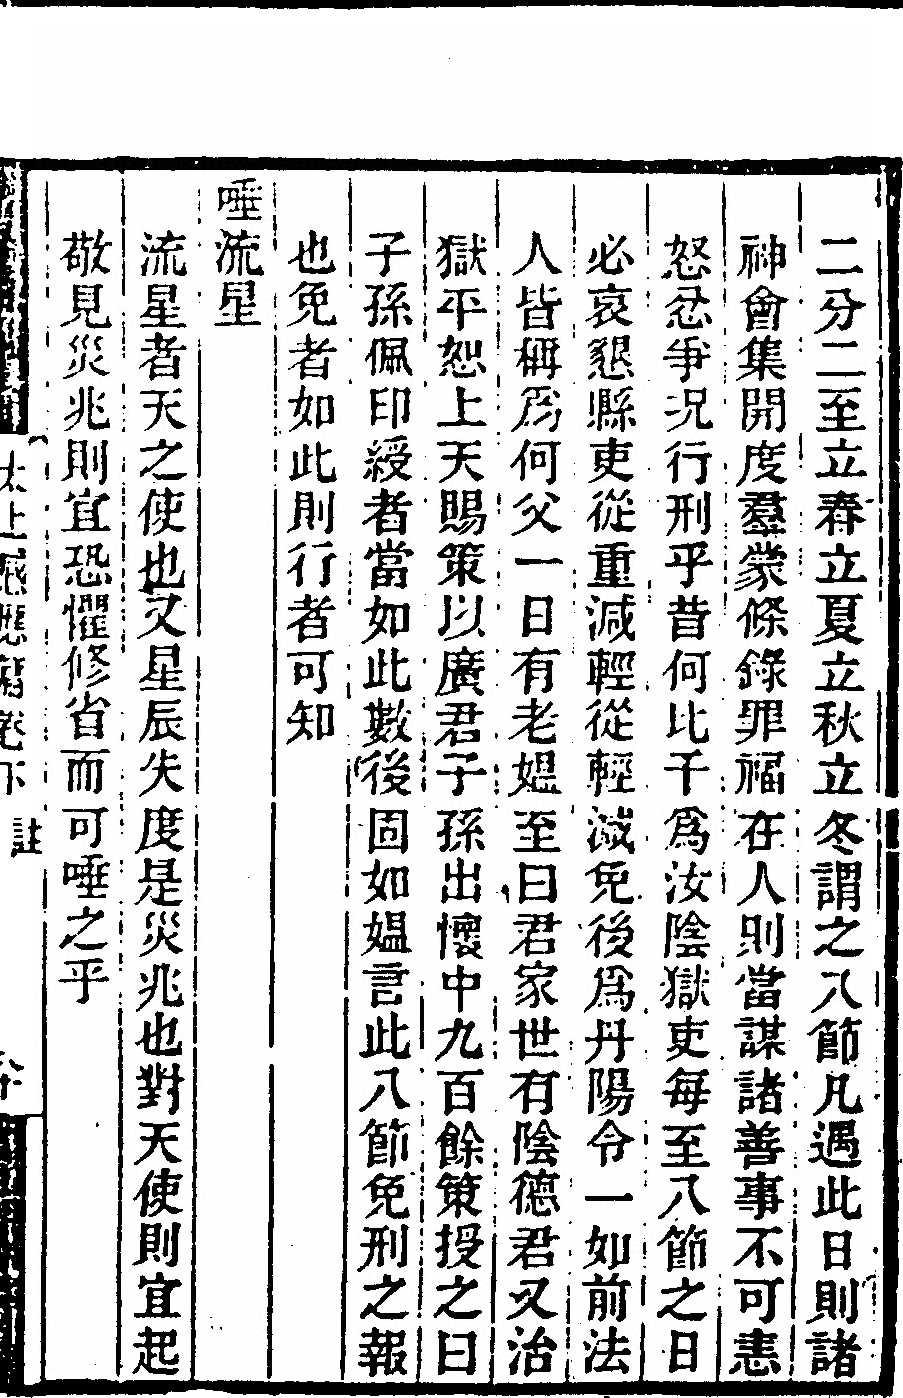 二分二至立春立夏立秋立冬謂之八節凡遇此日則諸
神會集開度羣蒙條錄罪福在人則當謀諸善事不可恚
怒忿爭况行刑乎昔何比干爲汝陰獄吏每至八節之日
必哀懇縣吏從重減輕從輕減免後爲丹陽令一如前法
人皆稱爲何父一日有老媼至曰君家世有陰德君又治
獄平恕上天賜策以廣君子孫出懷中九百餘策授之曰
子孫佩印綬者當如此數後固如媼言此八節免刑之報
也免者如此則行者可知
唾流星
流星者天之使也又星辰失度是災兆也對天使則宜起
敬見災兆則宜恐懼修省而可唾之乎
太上感應篇卷下 註